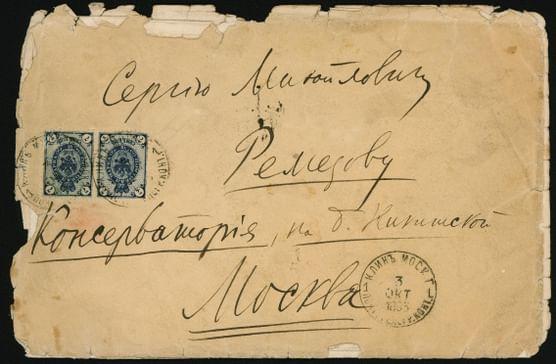 Сергѣю Михайловичу
Ремезову
Консерваторія, на Б. Никитской
Москва
КЛИНЪ МОСК. Г.
3
ОКТ
7
7